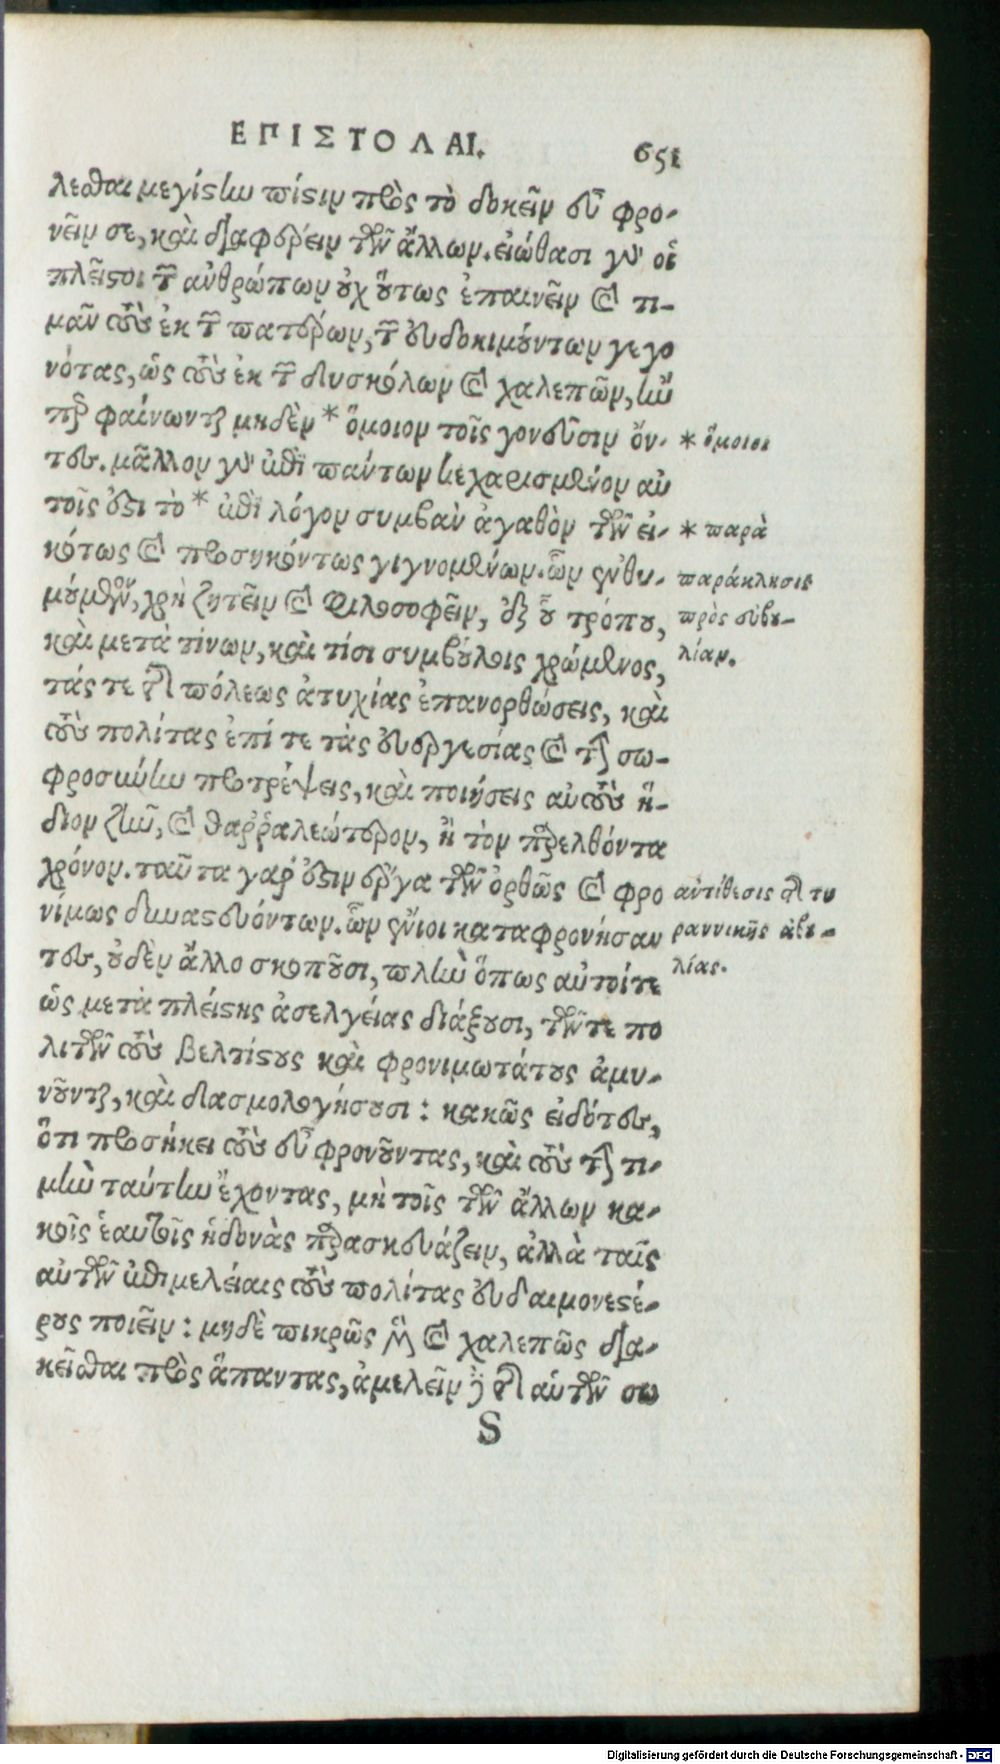 ΕΠΙΣΤΟΛΑΙ. 651
λεσθαι μεγίστην πίστιν πρὸς τὸ δοκεῖν εὖ φρο-
νεῖν σε, καὶ διαφέρειν τῶν ἄλλων. εἰώθασι γὰρ οἱ
πλεῖστοι τῶν ἀνθρώπων οὐχ οὕτως ἐπαινεῖν καὶ τι-
μᾶν τοὺς ἐκ τῶν πατέρων, τῶν εὐδοκιμούντων γεγο
νότας, ὡς τοὺς ἐκ τῶν δυσκόλων καὶ χαλεπῶν, ἤν
περ φαίνωνται μηδὲν * ὅμοιον τοῖς γονεῦσιν ὄν-
τες. μᾶλλον γὰρ ἐπὶ πάντων κεχαρισμένον αὐ
τοῖς ἐστι τὸ * ἐπὶ λόγον συμβὰν ἀγαθὸν τῶν εἰ-
κότως καὶ προσηκόντως γιγνομένων. ὧν ἐνθυ-
μούμενον, χρὴ ζητεῖν καὶ φιλοσοφεῖν, ἐξ οὗ τρόπου,
καὶ μετὰ τίνων, καὶ τίσι συμβούλοις χρώμενος,
τάς τε τῆς πόλεως ἀτυχίας ἐπανορθώσεις, καὶ
τοὺς πολίτας ἐπί τε τὰς εὐεργεσίας καὶ τὴν σω-
φροσύνην προτρέψεις, καὶ ποιήσεις αὐτοὺς ἥ-
διον ζῆν, καὶ θαῤῥαλεώτερον, ἢ τὸν παρελθόντα
χρόνον. ταῦτα γάρ ἐστιν ἔργα τῶν ὀρθῶς καὶ φρο
νίμως δυναστευόντων. ὧν ἔνιοι καταφρονήσαν
τες, οὐδὲν ἄλλο σκοποῦσι, πλὴν ὅπως αὐτοί τε
ὡς μετὰ πλείστης ἀσελγείας διάξουσι, τῶν τε πο
λιτῶν τοὺς βελτίστους καὶ φρονιμωτάτους ἀμυ-
νοῦνται, καὶ δασμολογήσουσι: κακῶς εἰδότες,
ὅτι προσήκει τοὺς εὖ φρονοῦντας, καὶ τοὺς τὴν τι-
μὴν ταύτην ἔχοντας, μὴ τοῖς τῶν ἄλλων κα-
κοῖς ἑαυτοῖς ἡδονὰς παρασκευάζειν, ἀλλὰ ταῖς
αὑτῶν ἐπιμελείαις τοὺς πολίτας εὐδαιμονεστέ-
ρους ποιεῖν: μηδὲ πικρῶς μὲν καὶ χαλεπῶς δια-
κεῖσθαι πρὸς ἅπαντας, ἀμελεῖν δὲ τῆς αὑτῶν σω
S
* ὅμοιοι
* παρὰ
παράκλησις
πρὸς εὐβου-
λίαν.
ἀντίθεσις τῆς τυ
ραννικῆς ἀβου-
λίας.
Digitalisierung gefördert durch die Deutsche Forschungsgemeinschaft - DFG